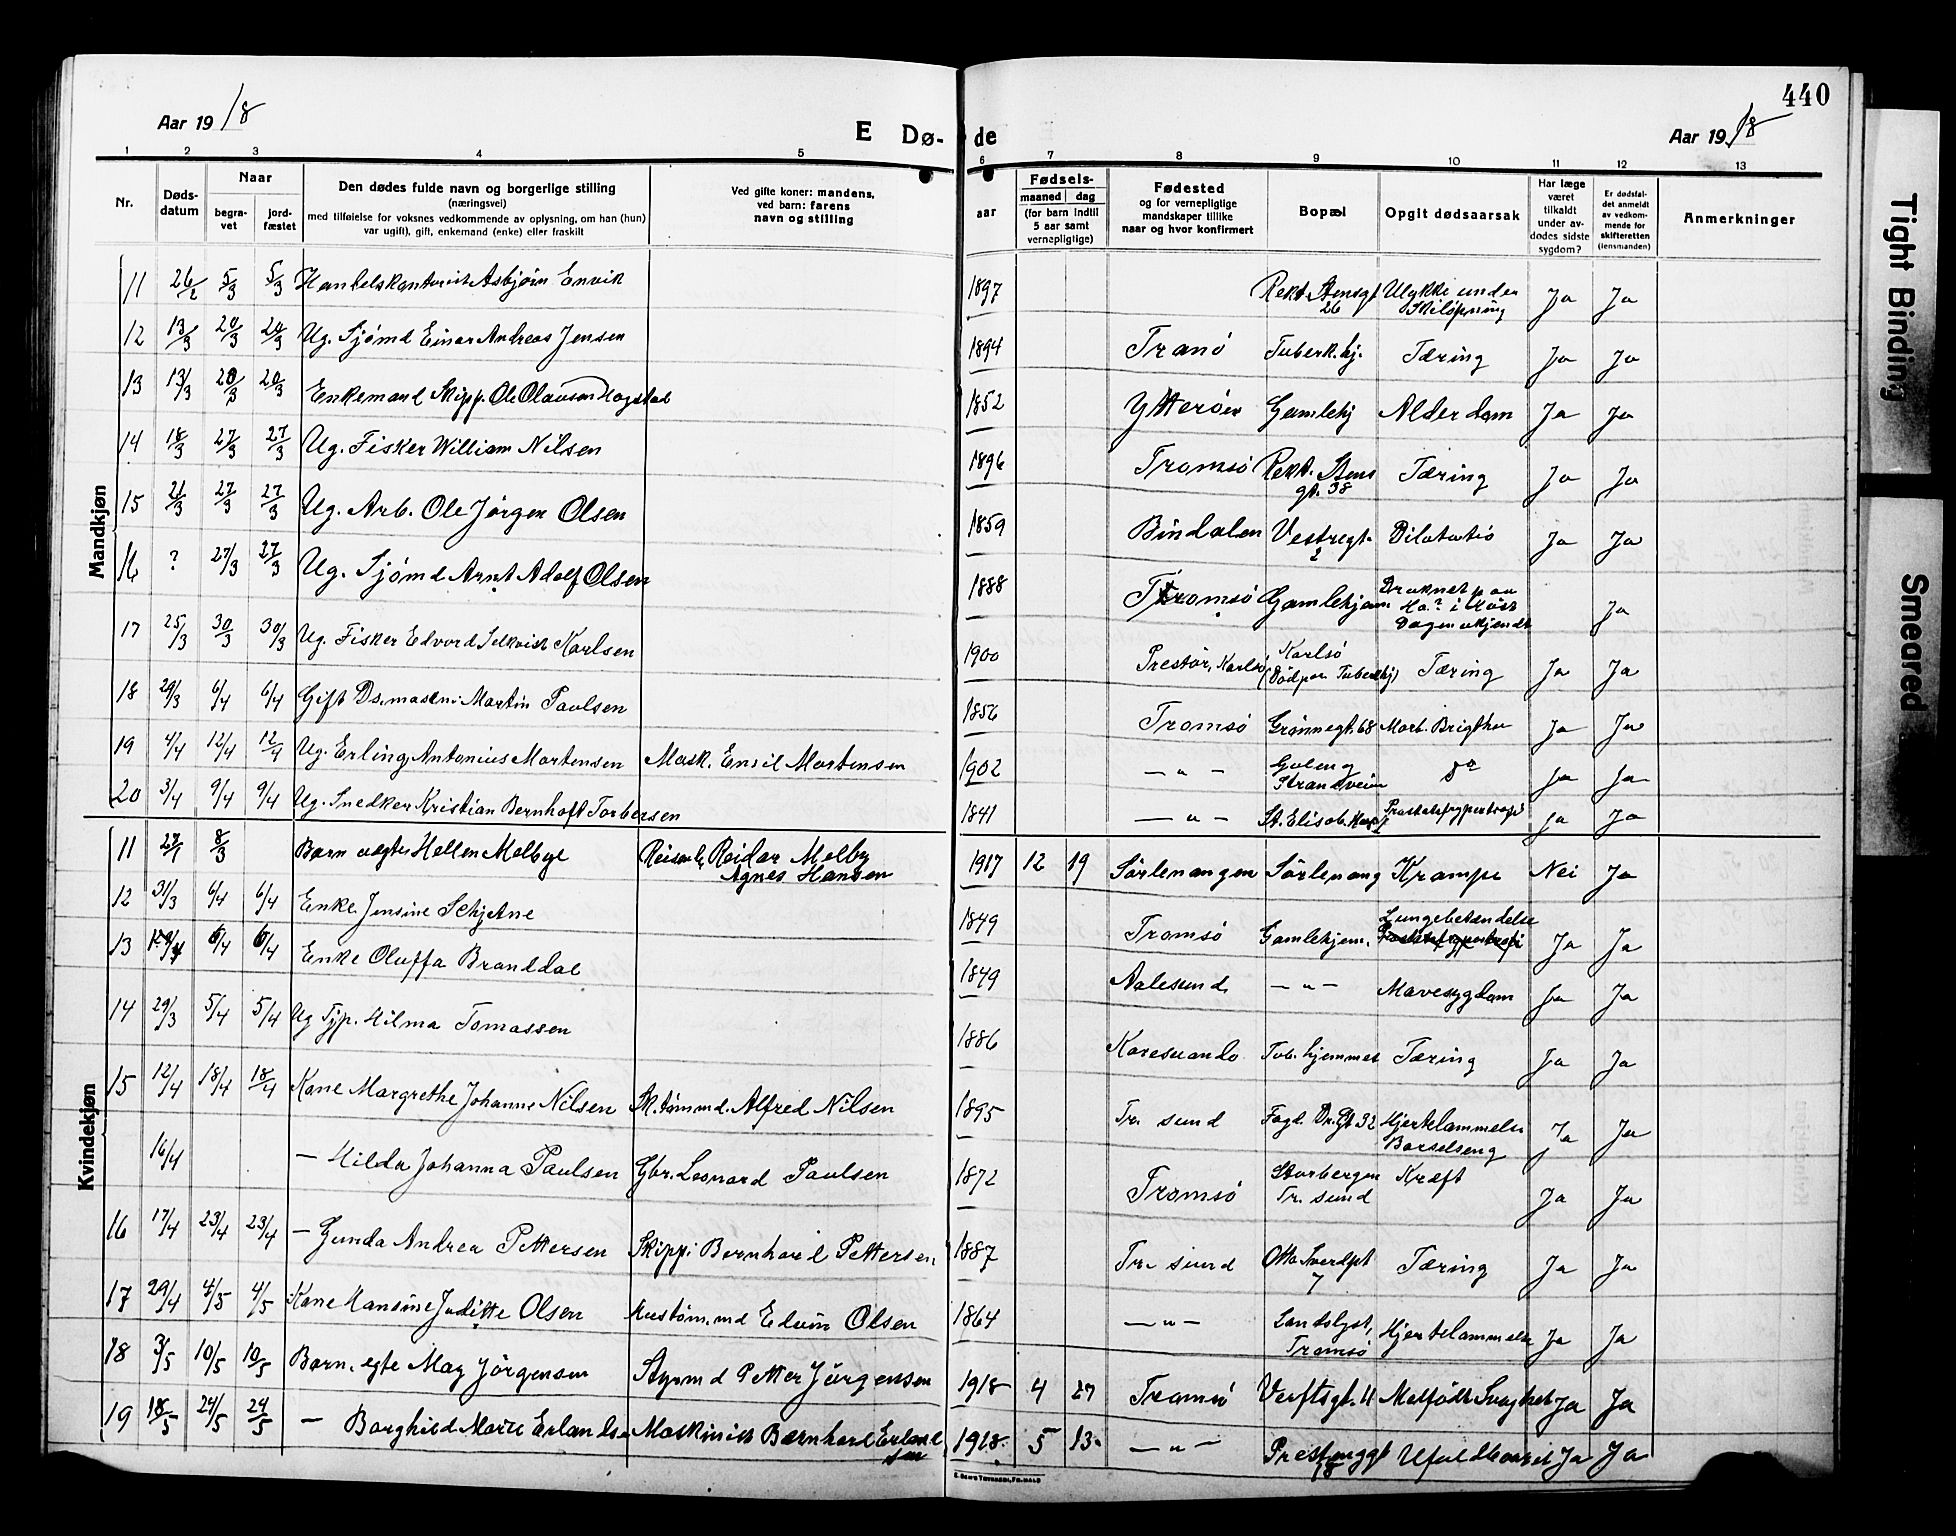 440
Aar 1918
E Dø-
de
Aar 1918
1 2 3 4 5 6 7 8 9 10 11 12 13
Nr.
Døds-
datum
Naar
begra-
vet
jord-
fæstet
Den dødes fulde navn og borgerlige stilling
(næringsvei)
med tilføielse for voksnes vedkommende av oplysning, om han (hun)
var ugift), gift, enkemand (enke) eller fraskilt
Ved gifte koner: mandens,
ved barn: farens
navn og stilling
aar
Fødsels-
maaned dag
(for barn indtil
5 aar samt
vernepligtige)
Fødested
og for vernepligtige
mandskaper tillike
naar og hvor konfirmert
Bopæl
Opgit dødsaarsak
Har læge
været
tilkaldt
under av-
dødes sidste
sygdom?
Er dødsfal-
det anmeldt
av vedkom-
mende for
skifteretten
(lensmanden)
Anmerkninger
Mandkjøn
11 26/2 5/3 5/3 Handelskontorist Asbjørn Envik 1897 Rekt. Stensgt 26 Ulykke under Skiløpning Ja Ja
12 13/3 20/3 20/3 Ug. Sjømd Einar Andreas Jensen 1894 Tranö Tuberk.hj. Tæring Ja Ja
13 13/3 20/3 20/3 Enkemand Skipp. Ole Olausen Hogstad 1852 Ytteröen Gamlehj Alderdom Ja Ja
14 18/3 27/3 27/3 Ug. Fisker William Nilsen 1896 Tromsö Rekt. Stens gt. 38 Tæring Ja Ja
15 21/3 27/3 27/3 Ug. Arb. Ole Jørgen Olsen 1859 Bindalen Vestregt. 2 Dilatatio Ja Ja
16 ? 27/3 27/3 Ug. Sjømd Arnt Adolf Olsen 1888 Tromsö Gamlehjem Druknet paa Ha? i Høst Dagen ukjendt Ja
17 25/3 30/3 30/3 Ug. Fisker Edvard Selkvist Karlsen 1900 Prestör, Karlsö Karlsö (Död paa Tuberkhj) Tæring Ja Ja
18 29/3 6/4 6/4 Gift Ds.maskni Martin Paulsen 1856 Tromsö Grønnegt. 68 Morb. Brigthii Ja Ja
19 4/4 12/4 12/4 Ug. Erling Antonius Mortensen Mask. Emil Mortensen 1902 — " — Strandveien do Ja Ja
20 3/4 9/4 9/4 Ug. Snedker Kristian Bernhoft Torbersen 1841 — " — St. Elisab. Hosp Prostatahypertrofi Ja Ja
Kvindekjøn
11 27/1 8/3 Barn uegte Hellen Melbye Reisende Reidar Melby Agnes Hansen 1917 12 19 Sörlenangen Sörlenang Krampe Nei Ja
12 31/3 6/4 6/4 Enke Jensine Schjetne 1849 Tromsö Gamlehjem. Lungebetændelse Ja Ja
13 6/4 6/4 Enke Oluffa Branddal 1849 Aalesund — " — Mavesygdom Ja Ja
14 29/3 5/4 5/4 Ug Tjp. Hilma Tomassen 1886 Karesuando Tub. hjemmet Tæring Ja Ja
15 12/4 18/4 18/4 Kone Margrethe Johanne Nilsen Sk.tømmd. Alfred Nilsen 1895 Tr. sund Fogd. Dr.Gt 32 Hjertelammelse Barselseng Ja Ja
16/4 — Hilda Johanna Paulsen Gbr. Leonard Paulsen 1872 Tromsö Storbergen Tr. sund Kræft Ja Ja
16 17/4 23/4 23/4 — Gunda Andrea Pettersen Skipp. Bernhard Pettersen 1887 Tr. sund Otto Sverdgt 7 Tæring Ja Ja
17 29/4 4/5 4/5 Kone Hansine Juditte Olsen Hustøm.md Edvin Olsen 1864 — " — Landslyst, Tromsö Hjertelammelse Ja Ja
18 3/5 10/5 10/5 Barn. egte May Jörgensen Styrmd Petter Jörgensen 1918 4 27 Tromsö Verftsgt. 4 Medfödt Svaghet Ja Ja
19 18/5 24/5 24/5 — Borghild Marie Erlandsen Maskinist Bernhard Erlandsen 1918 5 13 — " — Prestenggt 18 Ufuldbaaret Ja Ja
Tight Binding
Smeared